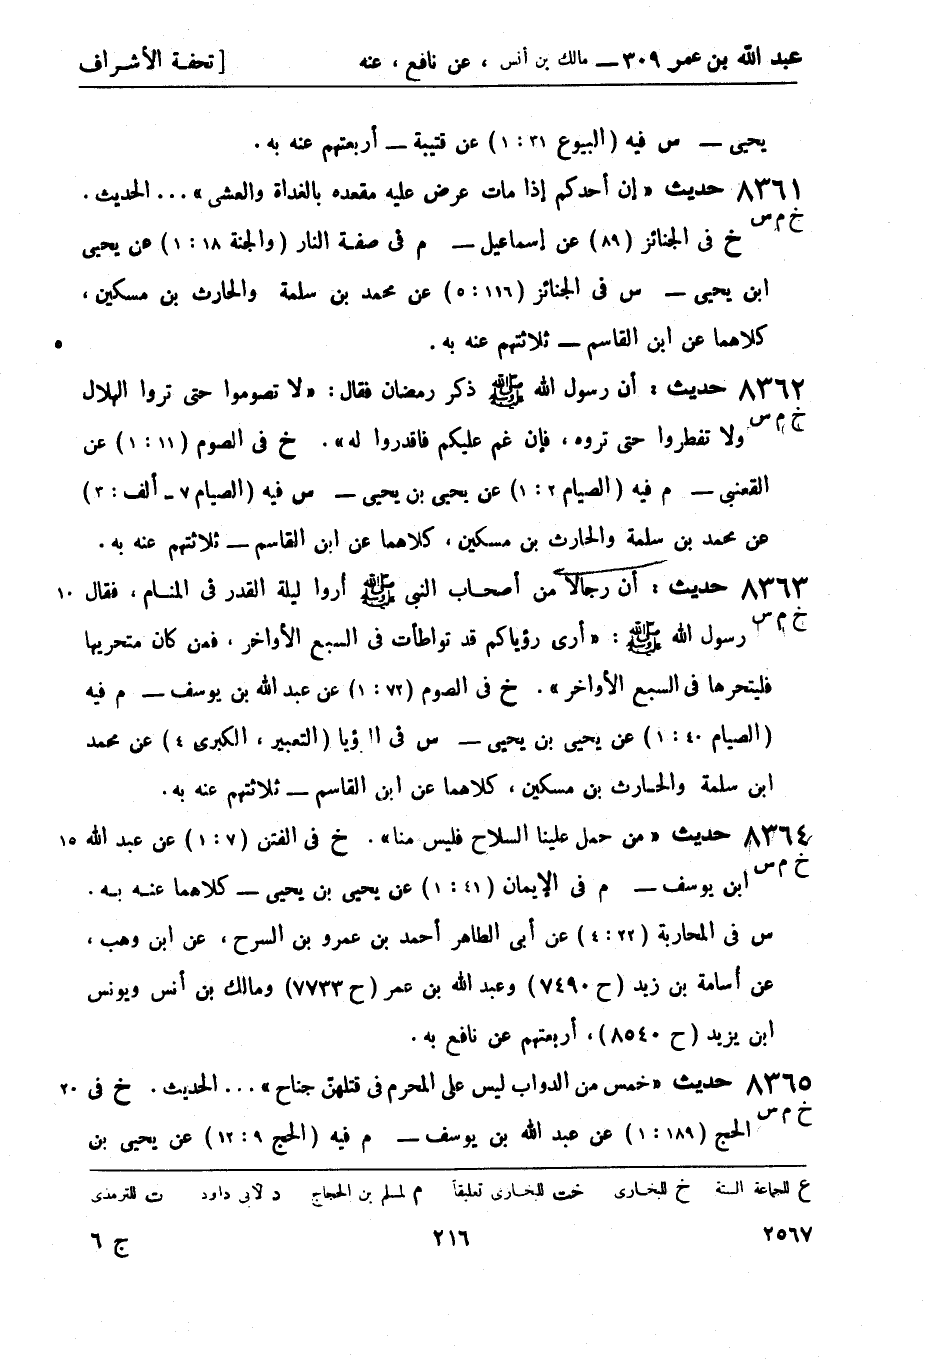 عبد الله بن عمر ٣٠٩ ـــ مالك بن أنس ، عن نافع ، عنه [ تحفة الأشراف
يحيى ـــ س فيه (البيوع ٣١ : ١) عن قتيبة ـــ أربعتهم عنه به .
٨٣٦١ حديث « إن أحدكم إذا مات عرض عليه مقعده بالغداة والعشى » ... الحديث .
خ م س
خ فى الجنائز (٨٩) عن إسماعيل ـــ م فى صفة النار (والجنة ١٨ : ١) عن يحيى
ابن يحيى ـــ س فى الجنائز (١١٦ : ٥) عن محمد بن سلمة والحارث بن مسكين ،
كلاهما عن ابن القاسم ـــ ثلاثتهم عنه به .
٨٣٦٢ حديث : أن رسول الله ﷺ ذكر رمضان فقال : « لا تصوموا حتى تروا الهلال
خ م س
ولا تفطروا حتى تروه ، فإن غم عليكم فاقدروا له » . خ فى الصوم (١١ : ١) عن
القعنبى ـــ م فيه (الصيام ٢ : ١) عن يحيى بن يحيى ـــ س فيه (الصيام ٧ - ألف : ٣)
عن محمد بن سلمة والحارث بن مسكين ، كلاهما عن ابن القاسم ـــ ثلاثتهم عنه به .
٨٣٦٣ حديث : أن رجالاً من أصحاب النبى ﷺ أروا ليلة القدر فى المنام ، فقال ١٠
خ م س
رسول الله ﷺ : « أرى رؤياكم قد تواطأت فى السبع الأواخر ، فمن كان متحريها
فليتحرها فى السبع الأواخر » . خ فى الصوم (٧٢ : ١) عن عبد الله بن يوسف ـــ م فيه
(الصيام ٤٠ : ١) عن يحيى بن يحيى ـــ س فى الرؤيا (التعبير ، الكبرى ٤) عن محمد
ابن سلمة والحارث بن مسكين ، كلاهما عن ابن القاسم ـــ ثلاثتهم عنه به .
٨٣٦٤ حديث « من حمل علينا السلاح فليس منا » . خ فى الفتن (٧ : ١) عن عبد الله ١٥
خ م س
ابن يوسف ـــ م فى الإيمان (٤١ : ١) عن يحيى بن يحيى ـــ كلاهما عنه به .
س فى المحاربة (٢٢ : ٤) عن أبى الطاهر أحمد بن عمرو بن السرح ، عن ابن وهب ،
عن أسامة بن زيد (ح ٧٤٩٠) وعبد الله بن عمر (ح ٧٧٣٣) ومالك بن أنس ويونس
ابن يزيد (ح ٨٥٤٠) ، أربعتهم عن نافع به .
٨٣٦٥ حديث « خمس من الدواب ليس على المحرم فى قتلهنّ جناح » ... الحديث . خ فى ٢٠
خ م س
الحج (١٨٩ : ١) عن عبد الله بن يوسف ـــ م فيه (الحج ٩ : ١٢) عن يحيى بن
ع للجماعة الستة خ للبخارى خت للبخارى تعليقاً م لمسلم بن الحجاج د لأبى داود ت للترمذى
٢٥٦٧ ٢١٦ ج ٦